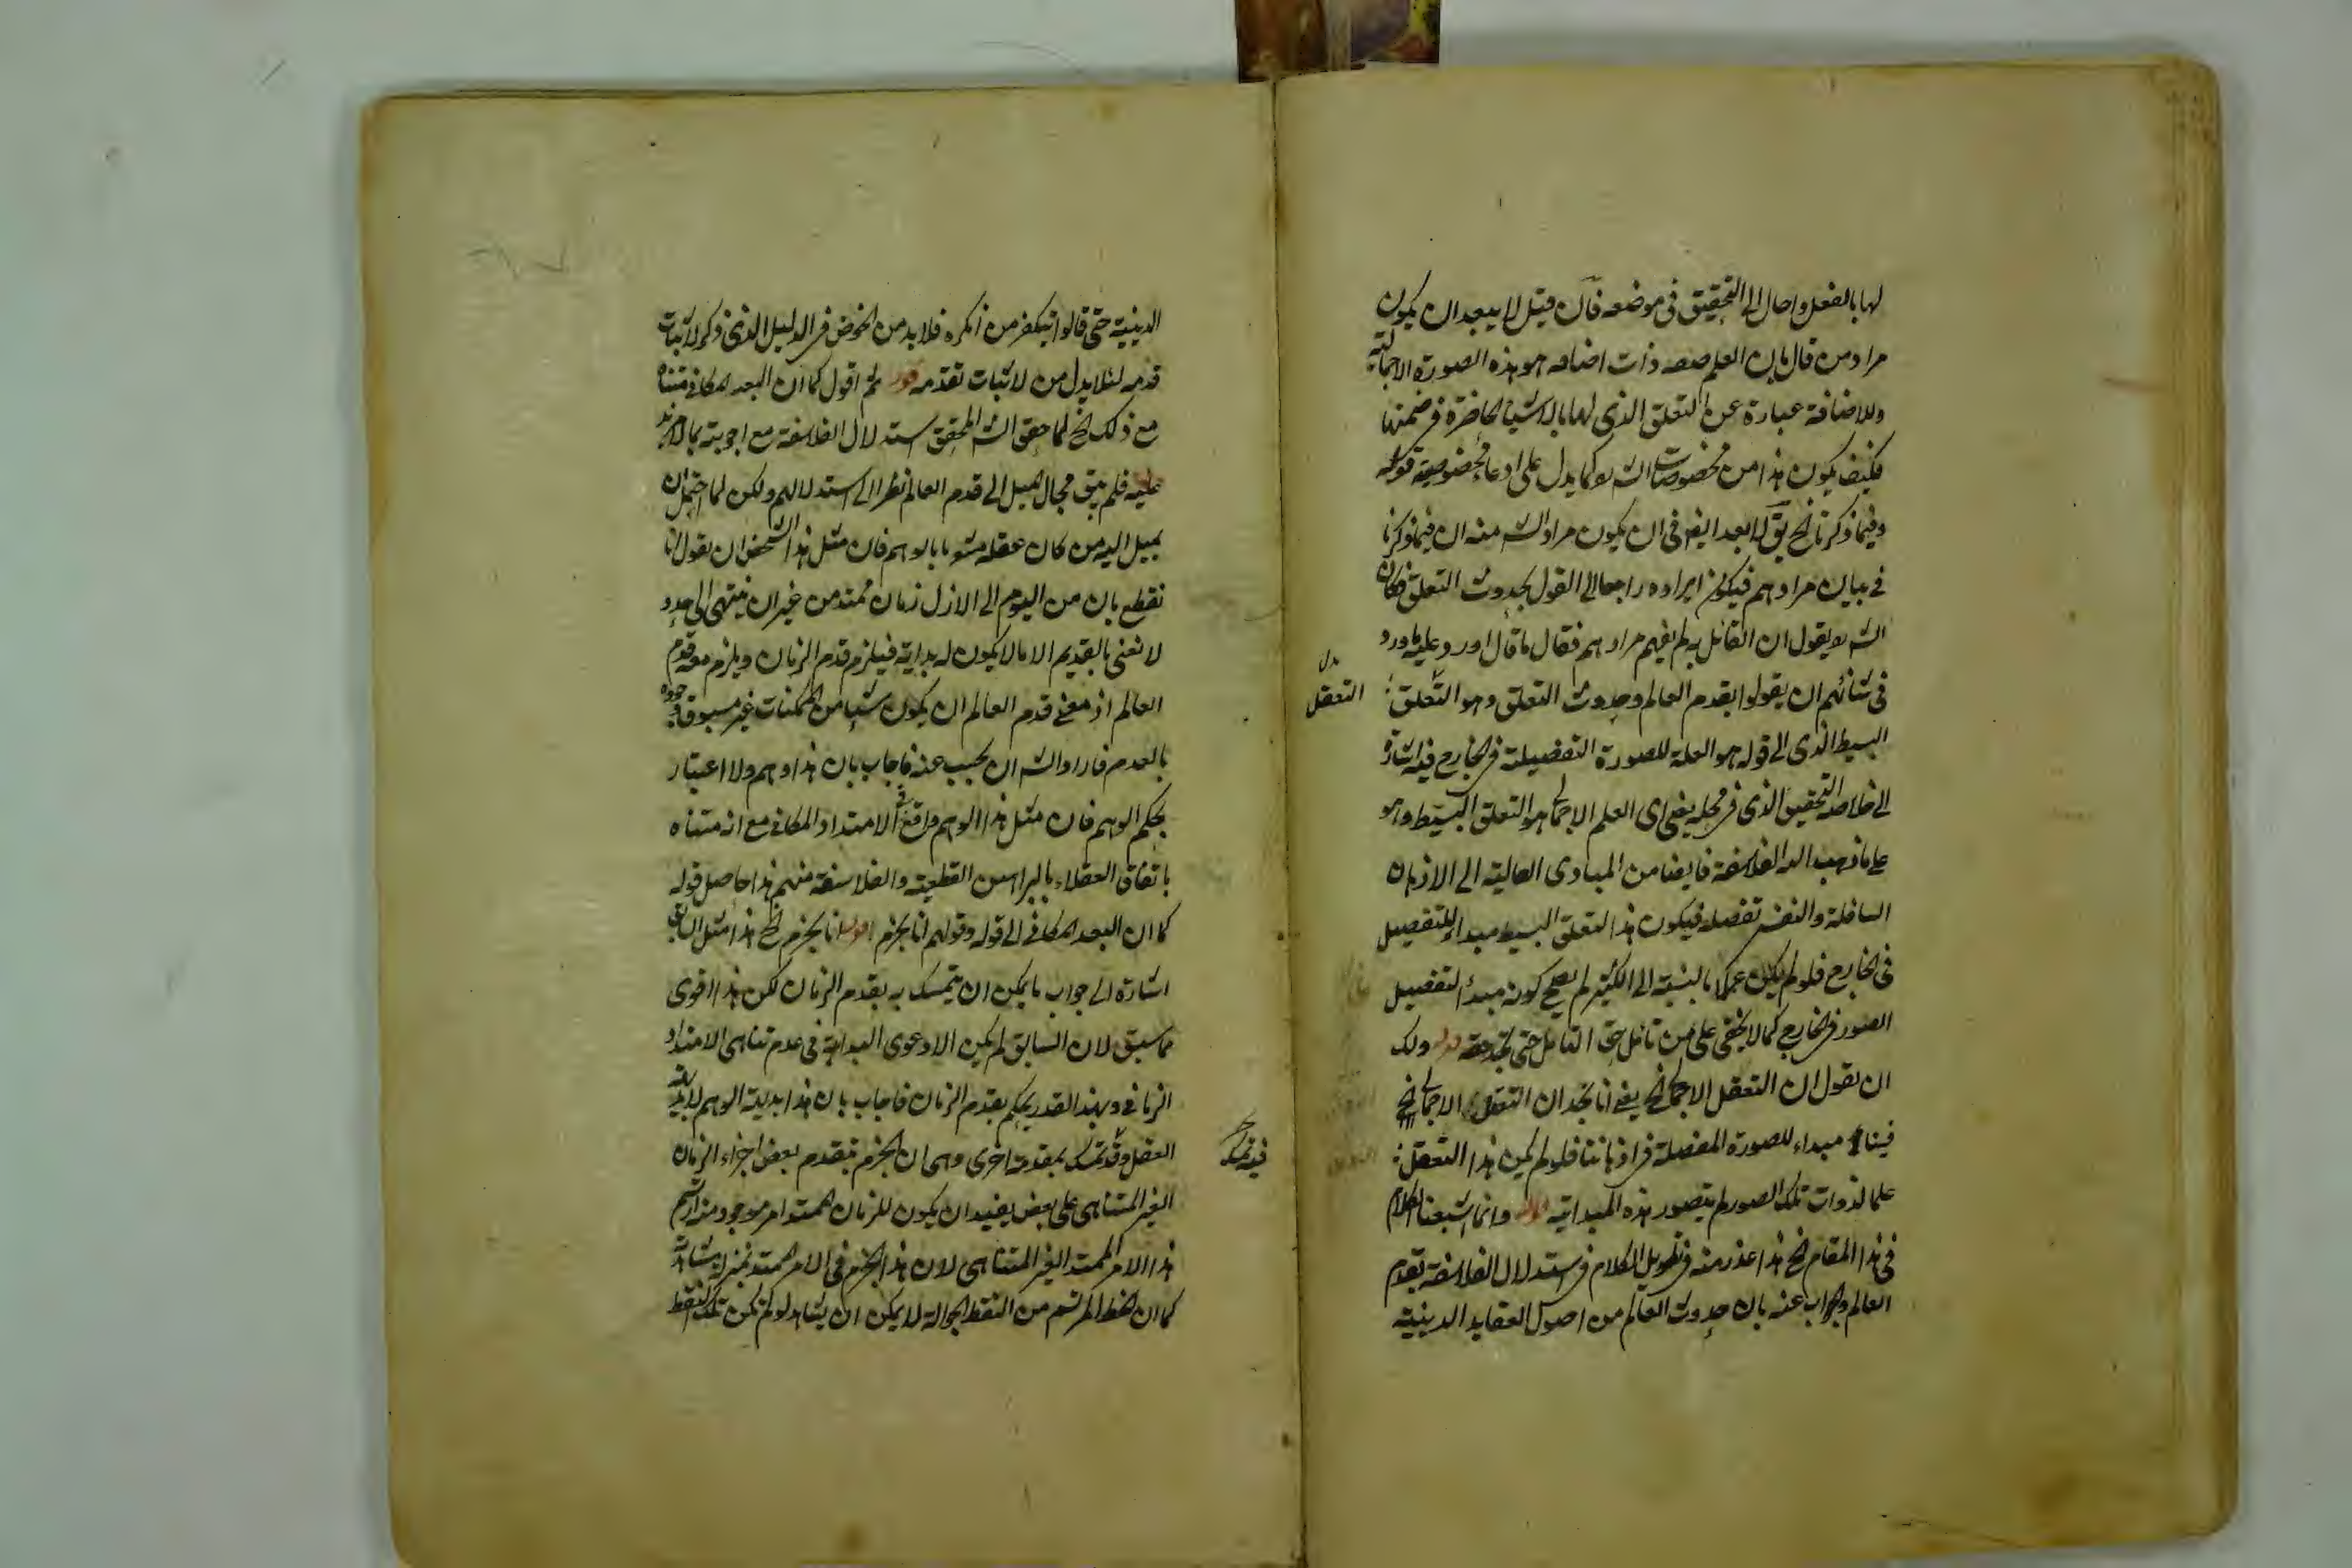 لها بالفعل واحال الى التحقيق فى موضعه فان قيل لا يبعد ان يكون
مراد من قال بان العلم صفه ذات اضافه هو هذه الصورة الاجمالية
وللاضافة عبارة عن التعلق الذى لها بالاشياء الحاضرة فى ضمنها
فكيف يكون هذا من مخصوصات الشه كما يدل على ادعاء مخصوصية قوله
وفيما ذكرنا الخ لا بعد ايضا فى ان يكون مراد الشه منه ان فيما ذكرنا
فى بيان مرادهم فيكون ايراده راجعا الى القول بحدوث التعلق فكان
الشه يقول ان القائل به لم يفهم مرادهم فقال ما قال اورد عليه ما ورد
فى شانهم ان يقولوا بقدم العالم وحدوث التعلق وهو التعلق
بدل
التعقل
البسيط الذى الى قوله هو العلة للصورة التفصيلة فى الخارج فيه اشارة
الى خلاصة التحقيق الذى فى محله يعنى اى العلم الاجمالى هو التعلق البسيط وهو
على ما ذهب اليه الفلاسفة فايضا من المبادى العالية الى الاذهان
السافلة والنفس تفصله فيكون هذا التعلق البسيط مبداء للتفصيل
فى الخارج فلو لم يكن علما بالنسبة الى الكثير لم يصح كونه مبدأ لتفصيل
الصور فى الخارج كما لا يخفى على من تامل حق التامل حتى تجد حقه قوله ولك
ان تقول ان التعقل الاجمالى الخ يعنى انا نجد ان التعقل الاجمالى الخ
فينا مبداء للصورة المفصلة فى اذهاننا فلو لم يكن هذا التعقل
علما لذوات تلك الصور لم يتصور هذه المبدائية قوله وانما اشبعنا الكلام
فى هذا المقام الخ هذا عذر منه فى تطويل الكلام فى استدلال الفلاسفة بقدم
العالم والجواب عنه بان حدوث العالم من اصول العقايد الدينية
الدينية حتى قالوا بتكفير من انكره فلا بد من الخوض فى الدليل الذى ذكر لاثبات
قدمه لئلا يدل من لاثبات تقدمه قوله ثم اقول كما ان البعد المكانى متناه
مع ذلك الخ لما حقق الشه المحقق استدلال الفلاسفة مع اجوبته بما لا مزيد
عليه فلم يبق مجال الميل الى قدم العالم نظرا الى استدلالهم ولكن لما احتمل ان
يميل اليه من كان عقله مشوبا بالوهم فان مثل هذا الشخص ان يقول انا
نقطع بان من اليوم الى الازل زمان ممتد من غير ان ينتهى الى حد و
لا نعنى بالقديم الا ما لا يكون له بداية فيلزم قدم الزمان ويلزم معه قدم
العالم اذ معنى قدم العالم ان يكون شيئا من الممكنات غير مسبوق وجوده
بالعدم فاراد الشه ان يجيب عنه فاجاب بان هذا وهم ولا اعتبار
بحكم الوهم فان مثل هذا الوهم واقع فى الامتداد المكانى مع انه متناه
باتفاق العقلاء بالبراهين القطعية والفلاسفة منهم هذا حاصل قوله
كما ان البعد المكانى الى قوله وقولهم انا نجزم قوله انا نجزم الخ هذا مثل السابق
اشارة الى جواب ما يمكن ان يتمسك به بقدم الزمان لكن هذا اقوى
مما سبق لان السابق لم يكن الا دعوى البداهة فى عدم تناهى الامتداد
الزمانى وبهذا القدر يحكم بقدم الزمان فاجاب بان هذا بديهة الوهم لا بديهة
العقل وقد تمسك بمقدمة اخرى وهى ان الجزم بتقدم بعض اجزاء الزمان
الغير المتناهى على بعض يفيد ان يكون للزمان الممتد امر موجود منه ارتسم
هذا الامر الممتد الغير المتناهى لان هذا الجزم فى الامر الممتد بمنزلة مشاهدة
كما ان الخط المرتسم من النقطة الجوالة لا يمكن ان يشاهد لو لم تكن تلك النقطة